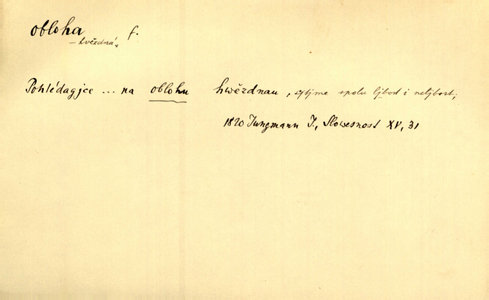 obloha f.
– hvězdná
Pohlédagjce ... na oblohu hwězdnau, cýtjme spolu ljbost i neljbost;
1820 Jungmann J., Slowesnost XV, 31